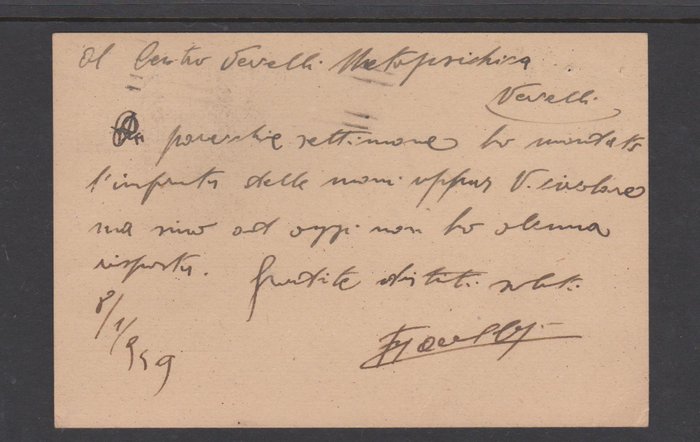 Al Centro Vevelli Metapsichica
Vevelli
Da parecchie settimane ho mandato
l'impronta delle mani oppur V. circolare
ma sino ad oggi non ho alcuna
risposta. Gradite distinti saluti.
8/1/949